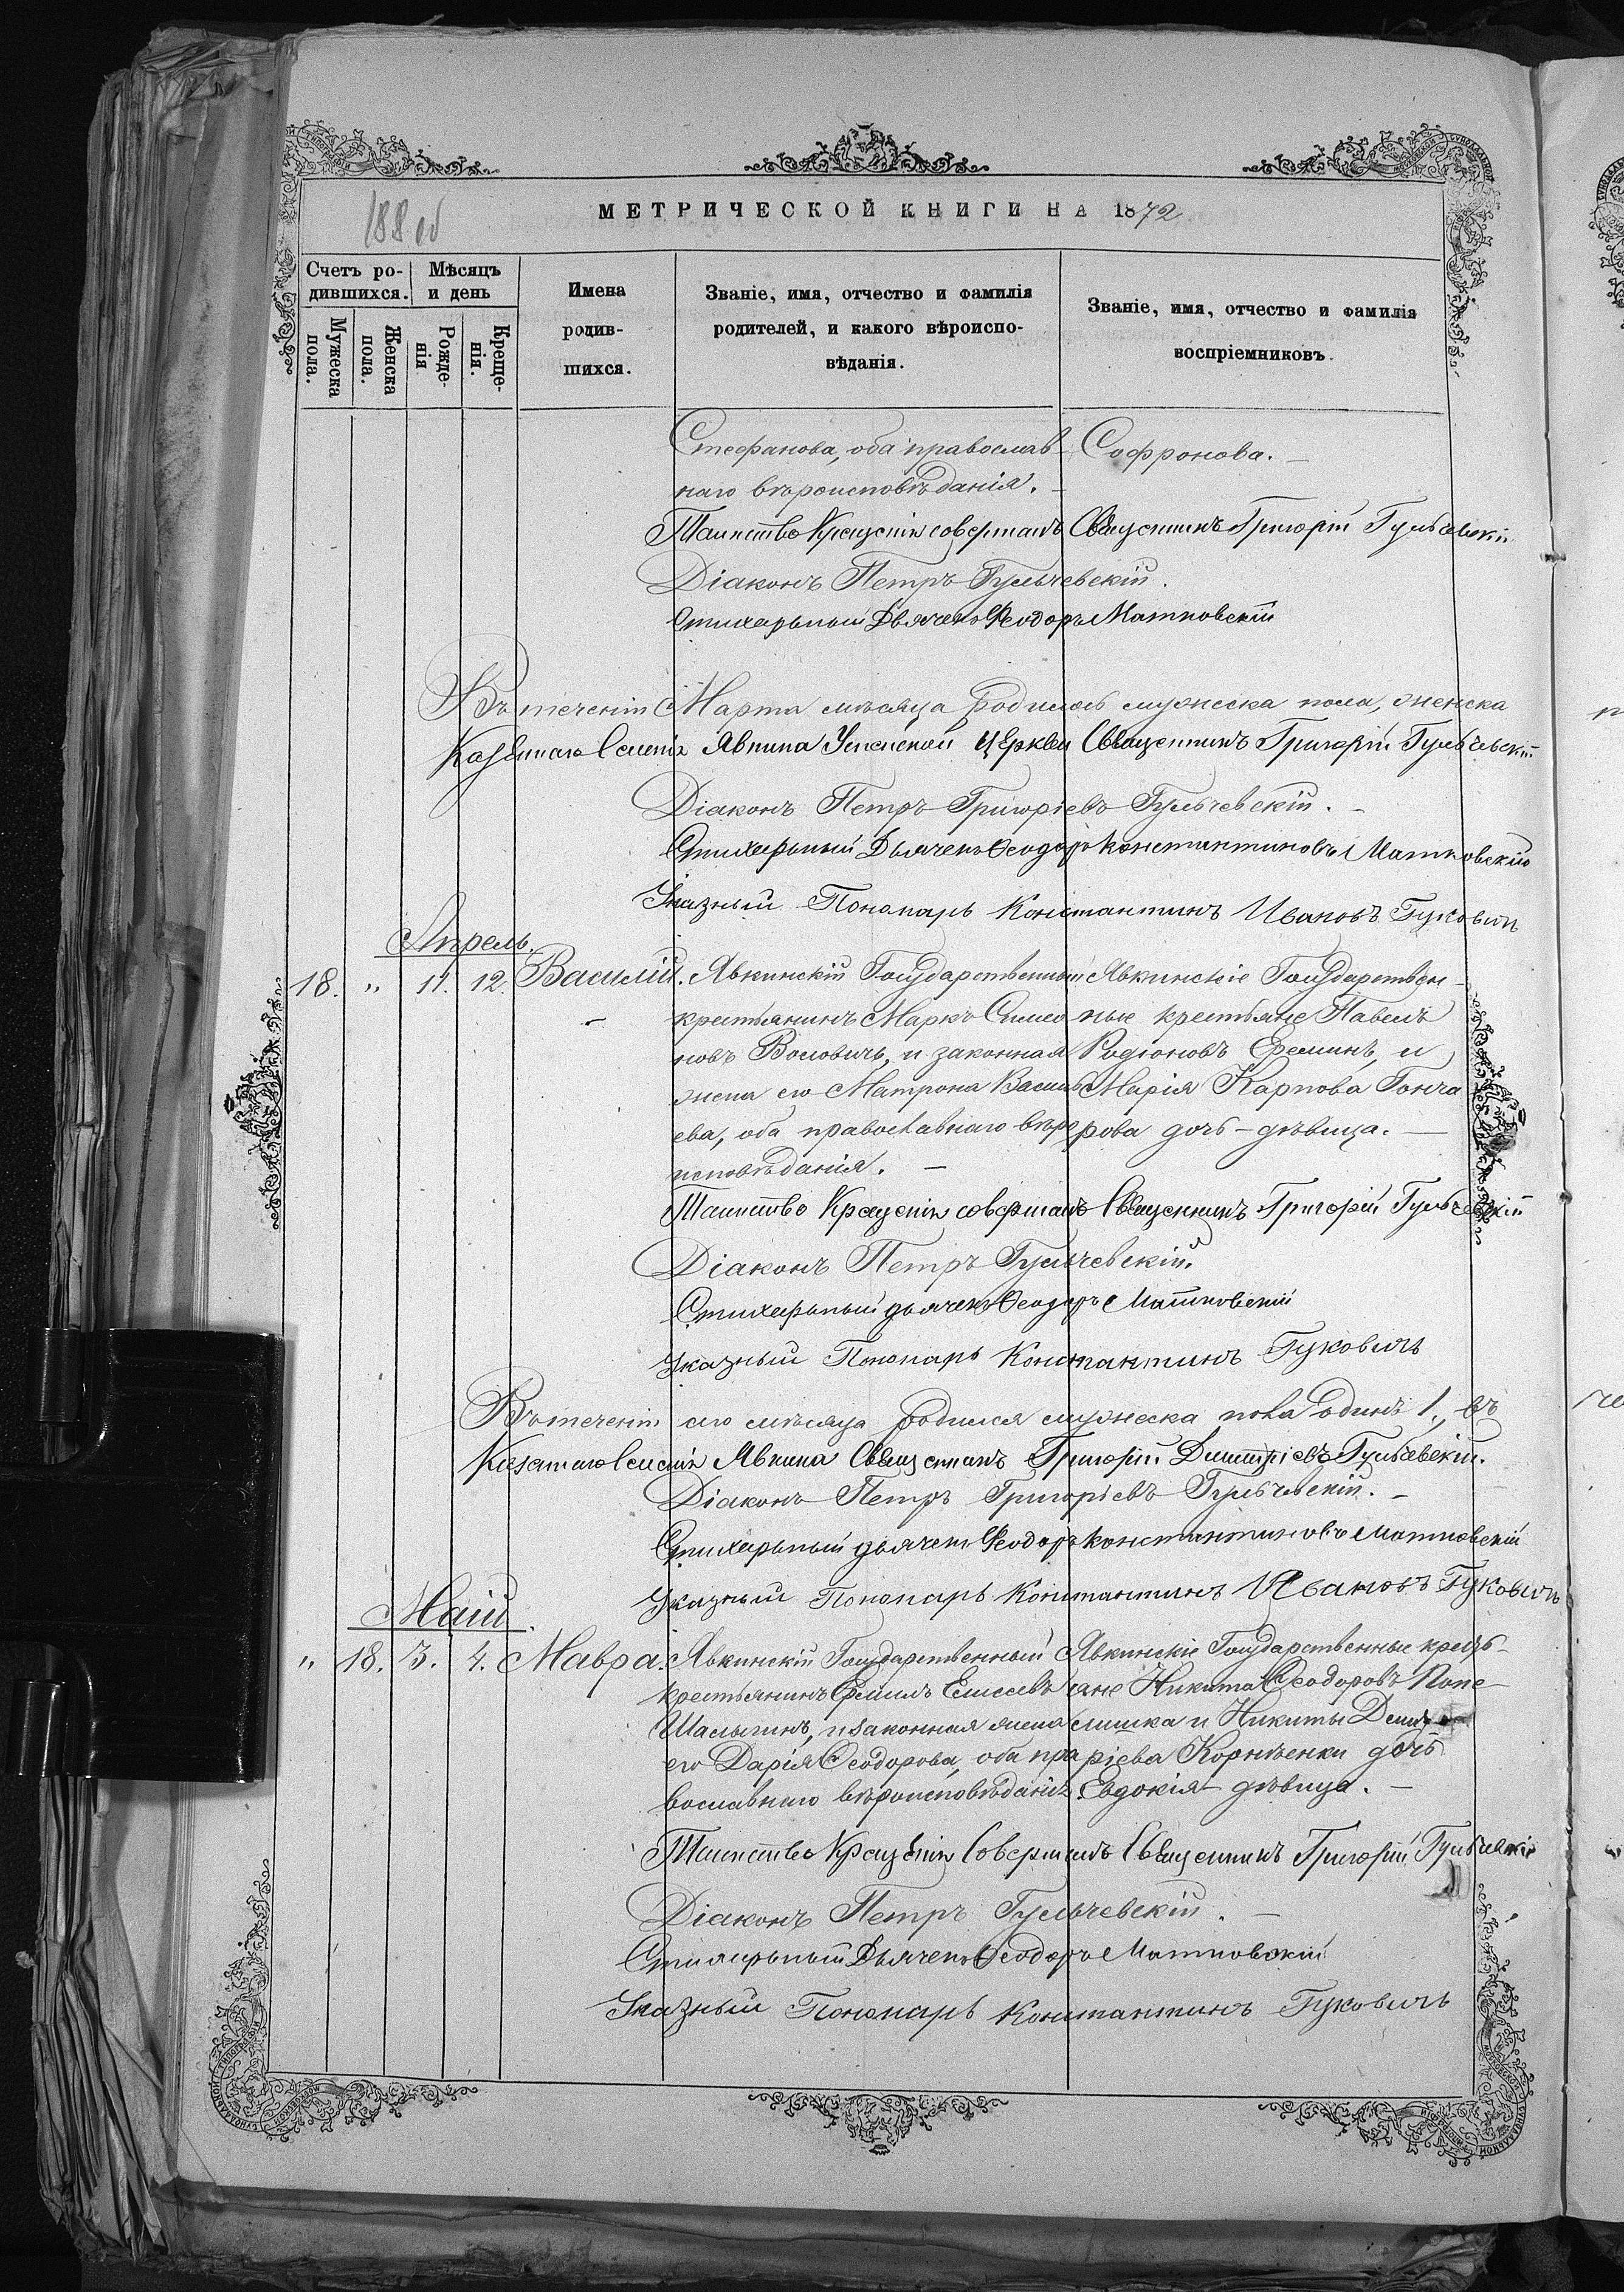 188 об
МЕТРИЧЕСКОЙ КНИГИ НА 1872
Счетъ ро-
дившихся.
Мѣсяцъ
и день
Мужеска
пола.
Женска
пола.
Рожде-
нія
Креще-
нія.
Имена
родив-
шихся.
Званіе, имя, отчество и фамилія
родителей, и какого вѣроиспо-
вѣданія.
Званіе, имя, отчество и фамилія
воспріемниковъ.
Стефанова, оба православ- Софронова. –
наго вѣроисповѣданія. –
Таинство Крещенія совершалъ Священникъ Григорій Гульчевскій
Діаконъ Петръ Гульчевскій.
Стихарьный Дьячекъ Ѳеодоръ Матковскій
Въ теченіи Марта мѣсяца родилось мужеска пола, женска
Казеннаго Селенія Явкина Успенской Церкви Священникъ Григорій Гульчевскій
Діаконъ Петръ Григоріевъ Гульчевскій. –
Стихарьный Дьячекъ Ѳеодоръ Константиновъ Матковскій
Указный Пономарь Константинъ Ивановъ Гуковичъ
Апрель.
18. " 11. 12. Василій.
Явкинскій Государственный
крестьянинъ Маркъ Симео
новъ Воловичъ, и законная
жена его Матрона Василь
ева, оба православнаго вѣро
исповѣданія. –
Явкинскіе Государствен-
ные крестьяне Павелъ
Родіоновъ Ереминъ, и
Марія Карпова Гонча
рова дочь – дѣвица. –
Таинство Крещенія совершалъ Священникъ Григорій Гульчевскій
Діаконъ Петръ Гульчевскій.
Стихарьный дьячекъ Ѳеодоръ Матковскій
Указный Пономарь Константинъ Гуковичъ
Въ теченіи сего мѣсяца родился мужеска пола одинъ 1., въ
Казеннаго Селенія Явкина Священникъ Григорій Димитріевъ Гульчевскій.
Діаконъ Петръ Григорьевъ Гульчевскій. –
Стихарьный дьячекъ Ѳеодоръ Константиновъ Матковскій
Указный Пономарь Константинъ Ивановъ Гуковичъ
Маій.
" 18. 3. 4. Мавра.
Явкинскій Государственный
крестьянинъ Елисеевъ
Шалыгинъ, и законная жена
его Дарія Ѳеодорова, оба пра
вославнаго вѣроисповѣданія.
Явкинскіе Государственные кресть-
яне Никита Ѳеодоровъ Попе-
лишка и Никиты Димит-
ріева Корнѣенки дочь
Евдокія – дѣвица. –
Таинство Крещенія Совершалъ Священникъ Григорій Гульчевскій
Діаконъ Петръ Гульчевскій. –
Стихарьный Дьячекъ Ѳеодоръ Матковскій
Указный Пономарь Константинъ Гуковичъ